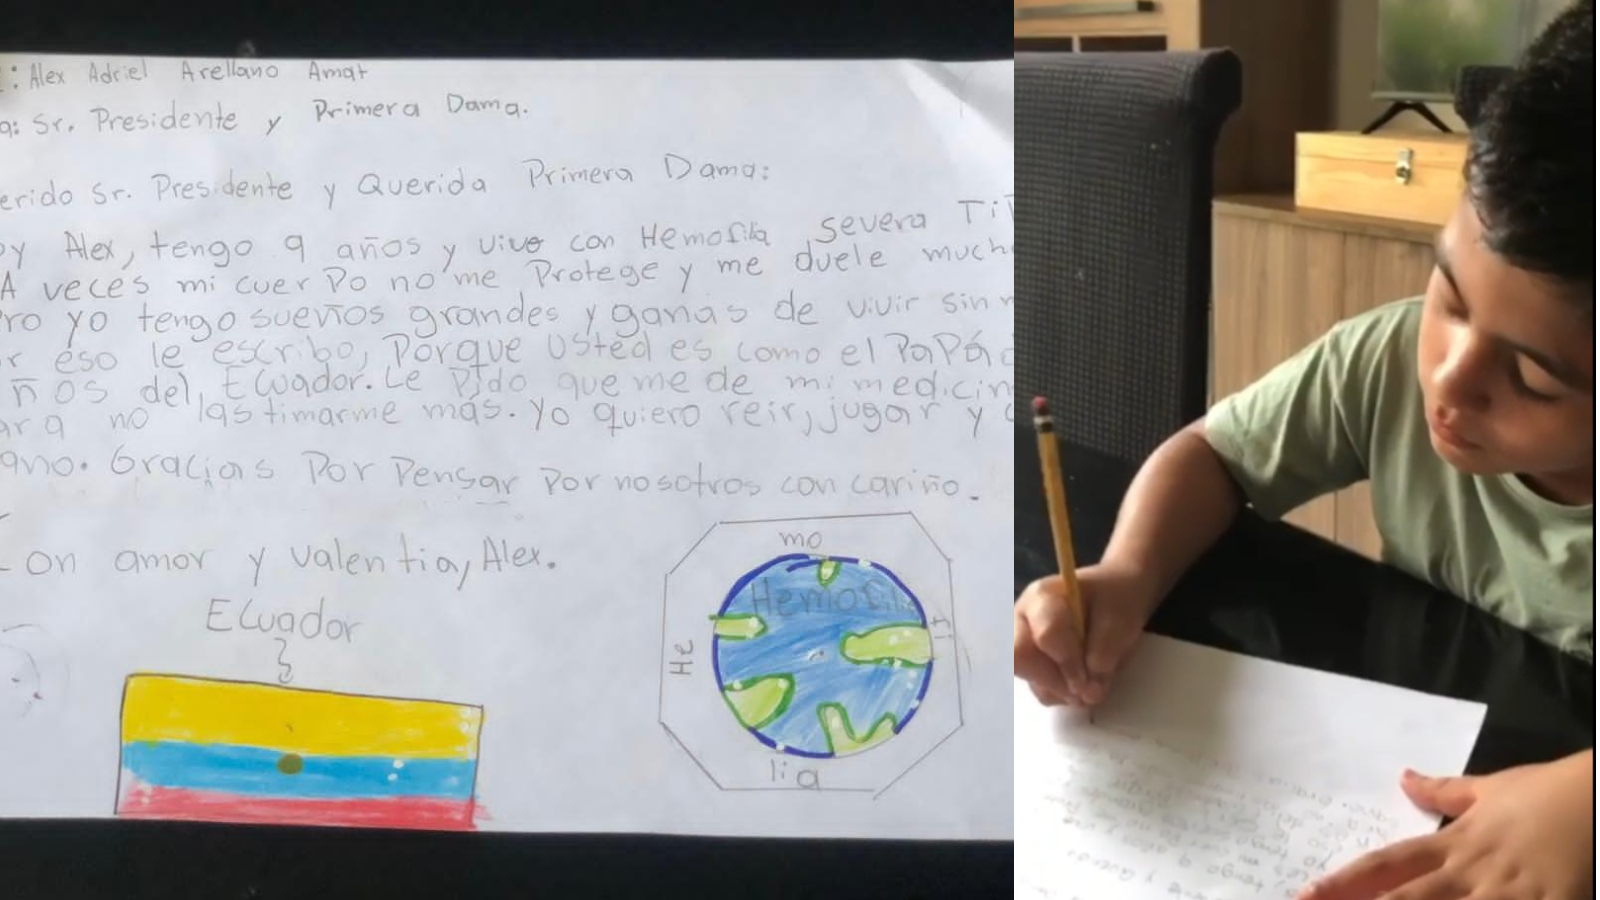 : Alex Adriel Arellano Amat
a: Sr. Presidente y Primera Dama.
erido Sr. Presidente y Querida Primera Dama:
oy Alex, tengo 9 años y vivo con Hemofilia severa Ti
A veces mi cuerpo no me Protege y me duele much
ro yo tengo sueños grandes y ganas de vivir sin
r eso le escribo, Porque Usted es como el PaPá
ños del Ecuador. Le Pido que me de mi medicin
ara no lastimarme más. Yo quiero reir, jugar y
ano. Gracias Por Pensar Por nosotros con cariño.
Con amor y valentia, Alex.
Ecuador
mo
Hemofilia
He
fi
lia